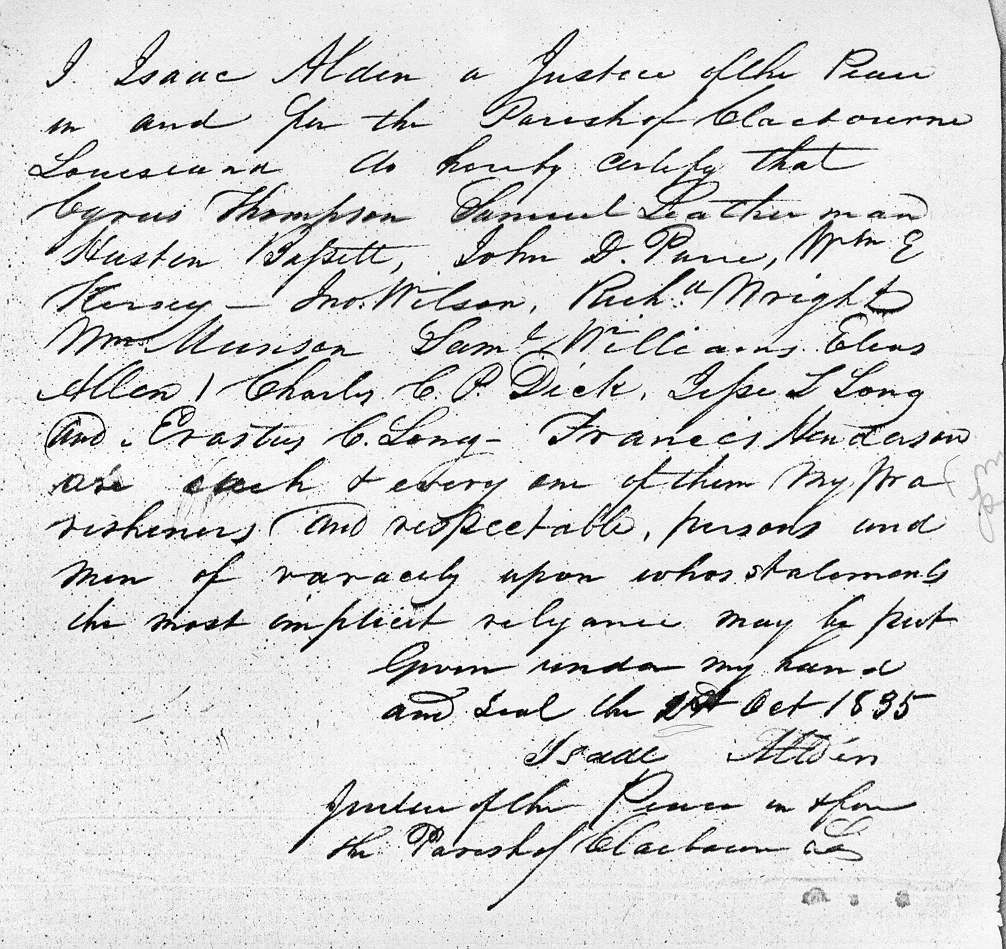 I. Isaac Alden a Justice of the Peace
in and for the Parish of Claebourne
Louiseana do hereby certify that
Cyrus Thompson Samuel Leatherman
Husten Bassett, John D. Pane, Wm E
Kersey - Jno. Wilson, Richd Wright
Wm Munson Saml Williams. Elias
Allen, Charles C. P. Dick, Jesse L Long
and Erastus C. Long - Francis Henderson
are each & every one of them My Pra
risheners and respectable, persons and
men of varacity upon whos statements
the most implicit relyance may be put
Given under my hand
and Seal the Oct 1835
Isaac Alden
Justice of the Peace in & for
the Parish of Claeborne La